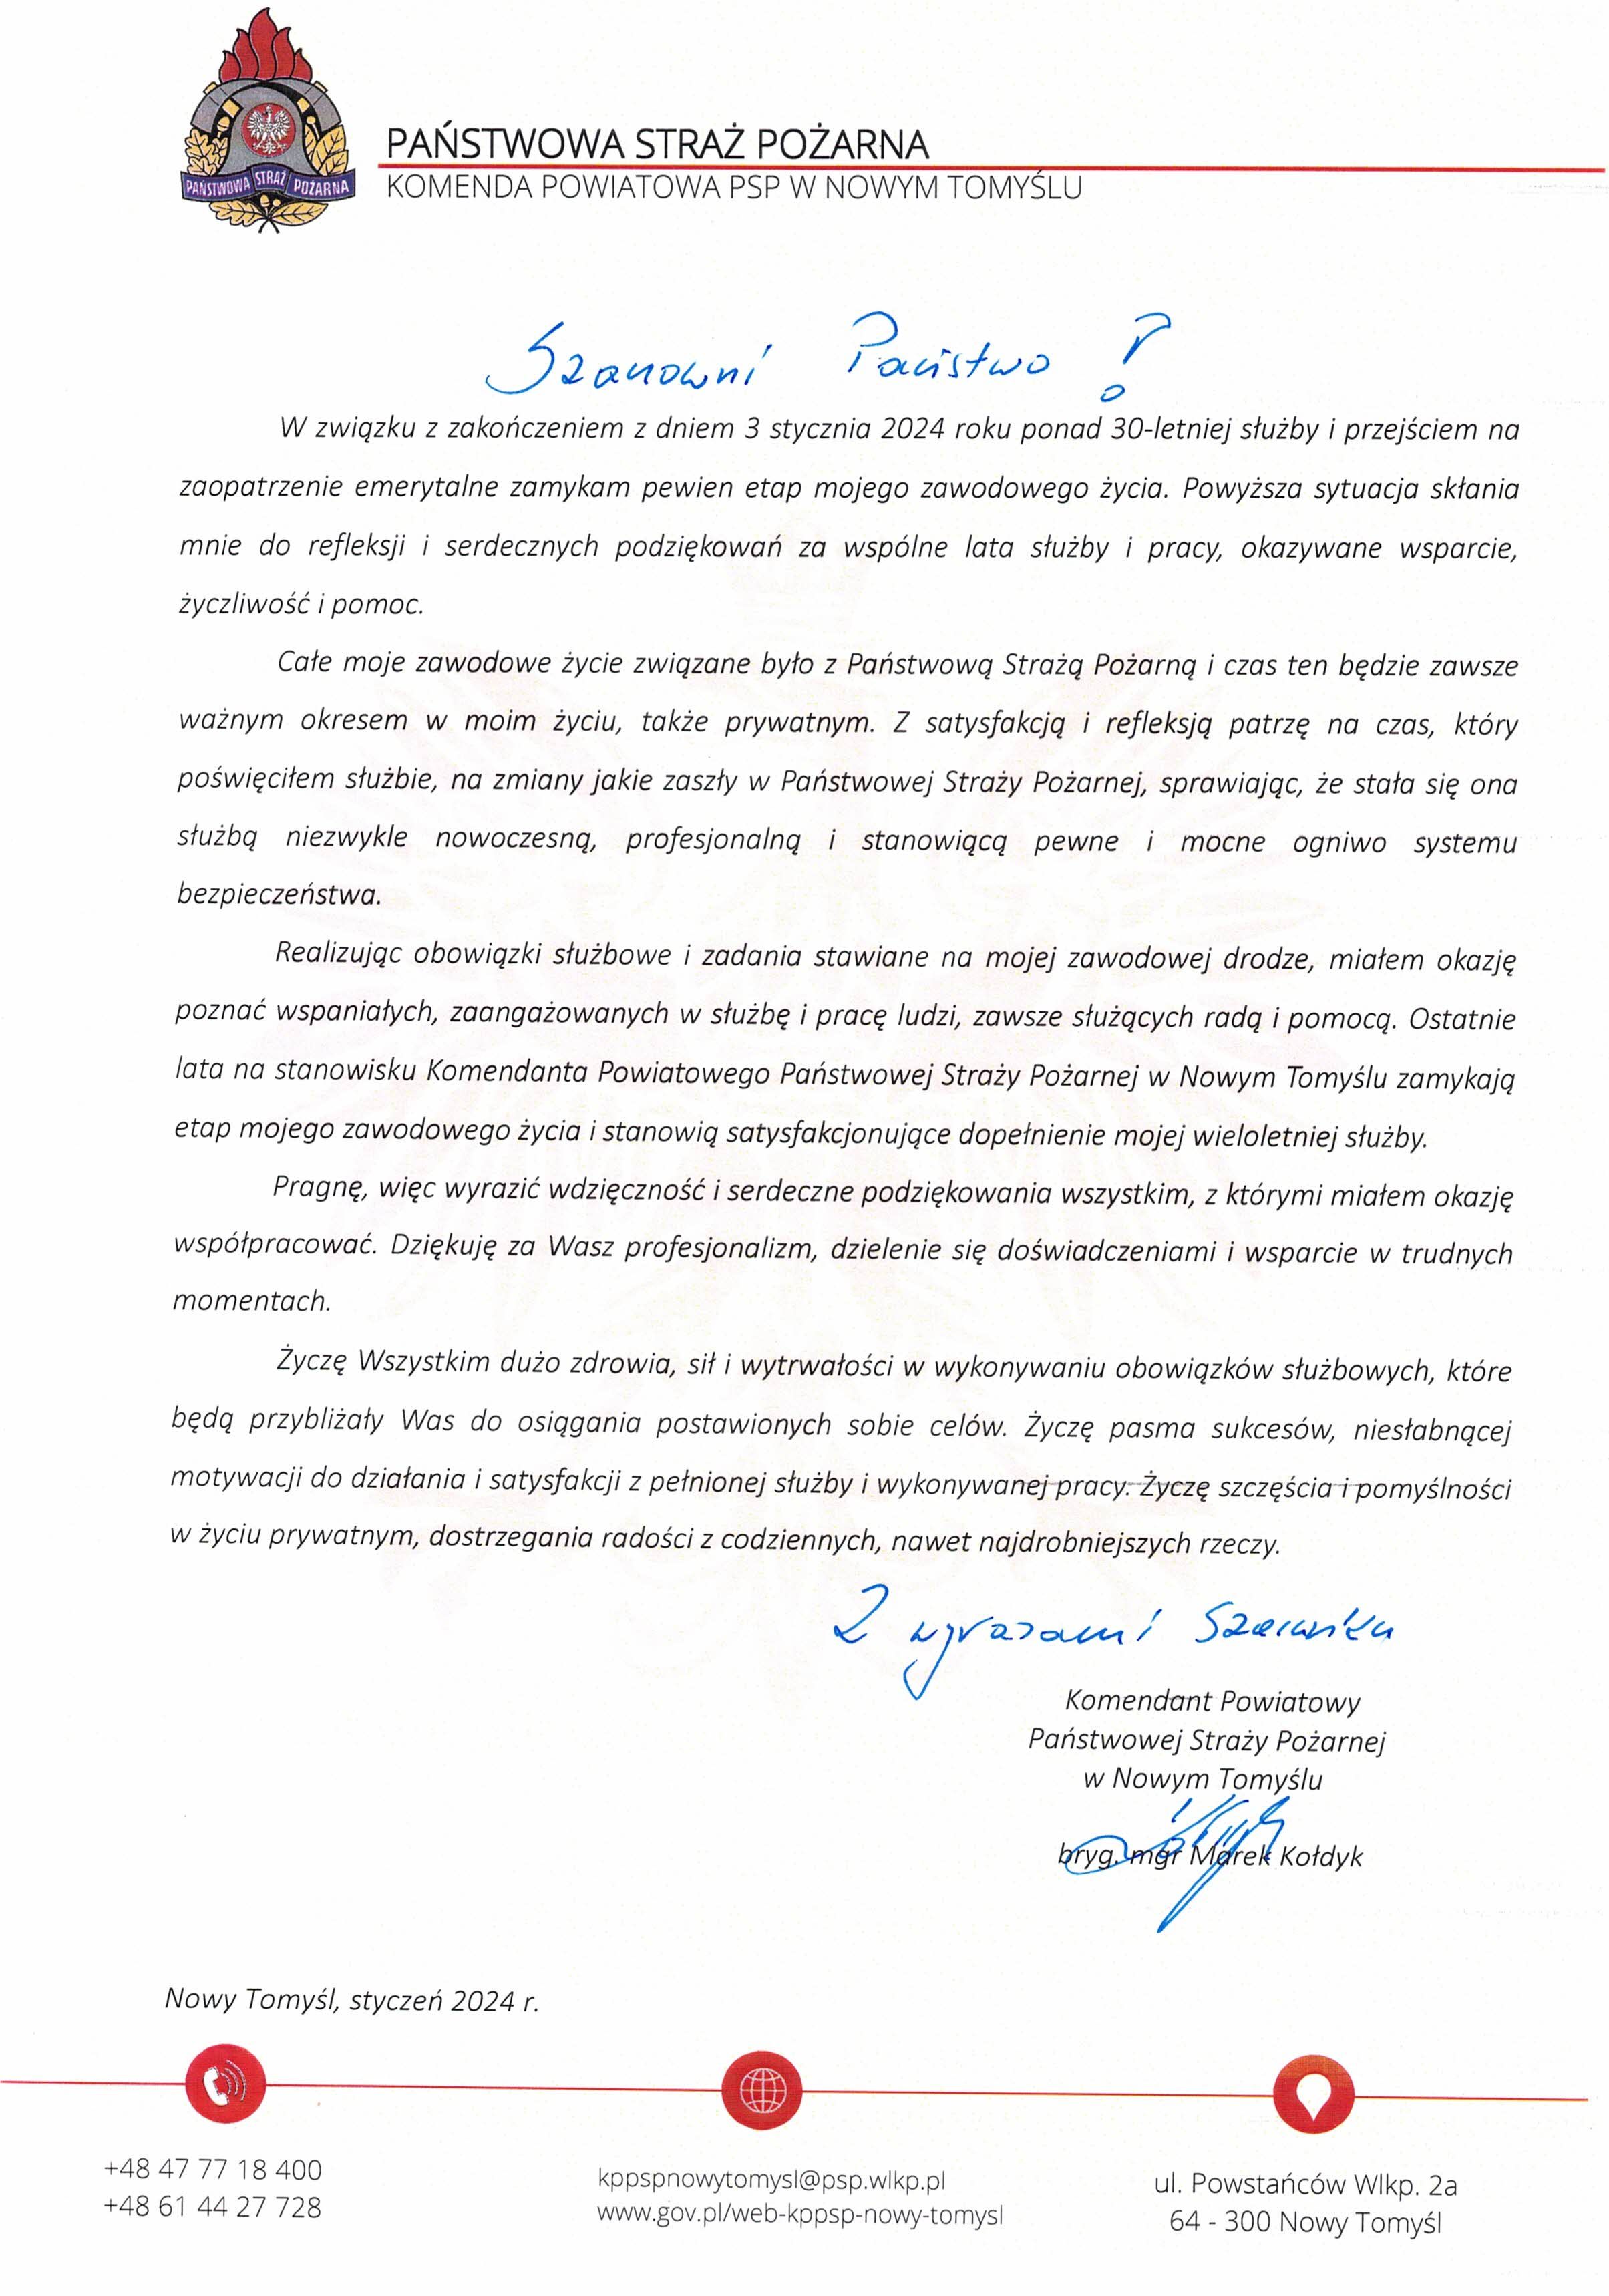 PAŃSTWOWA STRAŻ POŻARNA
PAŃSTWOWA STRAŻ POŻARNA
KOMENDA POWIATOWA PSP W NOWYM TOMYŚLU
Szanowni Państwo !
W związku z zakończeniem z dniem 3 stycznia 2024 roku ponad 30-letniej służby i przejściem na
zaopatrzenie emerytalne zamykam pewien etap mojego zawodowego życia. Powyższa sytuacja skłania
mnie do refleksji i serdecznych podziękowań za wspólne lata służby i pracy, okazywane wsparcie,
życzliwość i pomoc.
Całe moje zawodowe życie związane było z Państwową Strażą Pożarną i czas ten będzie zawsze
ważnym okresem w moim życiu, także prywatnym. Z satysfakcją i refleksją patrzę na czas, który
poświęciłem służbie, na zmiany jakie zaszły w Państwowej Straży Pożarnej, sprawiając, że stała się ona
służbą niezwykle nowoczesną, profesjonalną i stanowiącą pewne i mocne ogniwo systemu
bezpieczeństwa.
Realizując obowiązki służbowe i zadania stawiane na mojej zawodowej drodze, miałem okazję
poznać wspaniałych, zaangażowanych w służbę i pracę ludzi, zawsze służących radą i pomocą. Ostatnie
lata na stanowisku Komendanta Powiatowego Państwowej Straży Pożarnej w Nowym Tomyślu zamykają
etap mojego zawodowego życia i stanowią satysfakcjonujące dopełnienie mojej wieloletniej służby.
Pragnę, więc wyrazić wdzięczność i serdeczne podziękowania wszystkim, z którymi miałem okazję
współpracować. Dziękuję za Wasz profesjonalizm, dzielenie się doświadczeniami i wsparcie w trudnych
momentach.
Życzę Wszystkim dużo zdrowia, sił i wytrwałości w wykonywaniu obowiązków służbowych, które
będą przybliżały Was do osiągania postawionych sobie celów. Życzę pasma sukcesów, niesłabnącej
motywacji do działania i satysfakcji z pełnionej służby i wykonywanej pracy. Życzę szczęścia i pomyślności
w życiu prywatnym, dostrzegania radości z codziennych, nawet najdrobniejszych rzeczy.
Z wyrazami Szacunku
Komendant Powiatowy
Państwowej Straży Pożarnej
w Nowym Tomyślu
bryg. mgr Marek Kołdyk
Nowy Tomyśl, styczeń 2024 r.
+48 47 77 18 400
+48 61 44 27 728
kppspnowytomysl@psp.wlkp.pl
www.gov.pl/web-kppsp-nowy-tomysl
ul. Powstańców Wlkp. 2a
64 - 300 Nowy Tomyśl